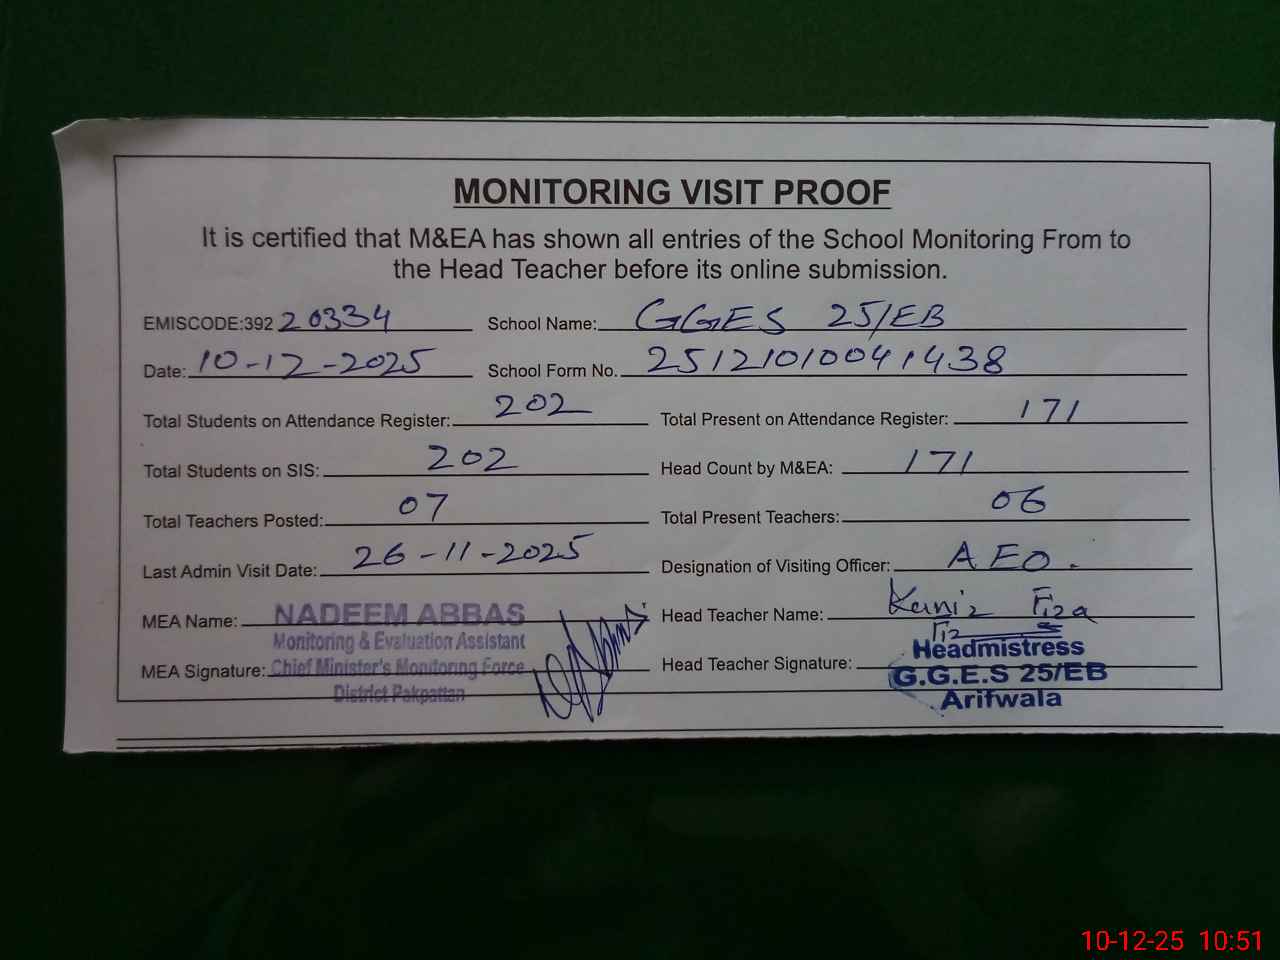 MONITORING VISIT PROOF
It is certified that M&EA has shown all entries of the School Monitoring From to
the Head Teacher before its online submission.
EMISCODE:392 20334 School Name: GGES 25/EB
Date: 10-12-2025 School Form No. 25121010041438
Total Students on Attendance Register: 202 Total Present on Attendance Register: 171
Total Students on SIS: 202 Head Count by M&EA: 171
Total Teachers Posted: 07 Total Present Teachers: 06
Last Admin Visit Date: 26-11-2025 Designation of Visiting Officer: AEO.
MEA Name: NADEEM ABBAS Head Teacher Name: Kaniz Fiza
Monitoring & Evaluation Assistant
MEA Signature: Chief Minister's Monitoring Force Head Teacher Signature:
District Pakpattan
Headmistress
G.G.E.S 25/EB
Arifwala
10-12-25 10:51